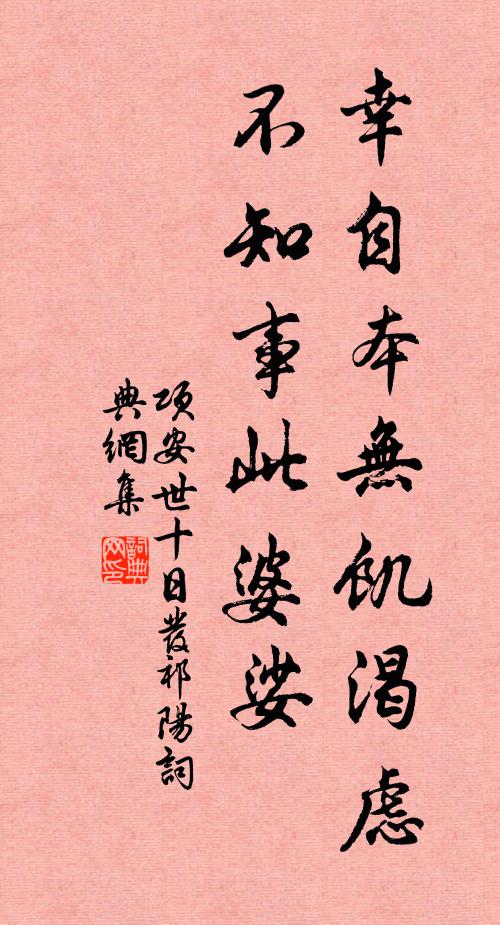 幸自本無飢渴慮
不知事此婆娑
項安世十日發祁陽詞
典網集
詞典網印